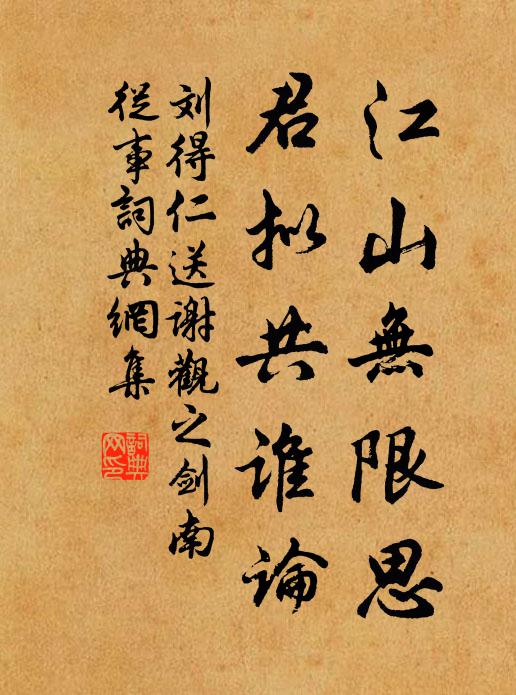 江山無限思
君拟共谁論
刘得仁送谢觀之剑南
從事詞典網集
詞典
网印